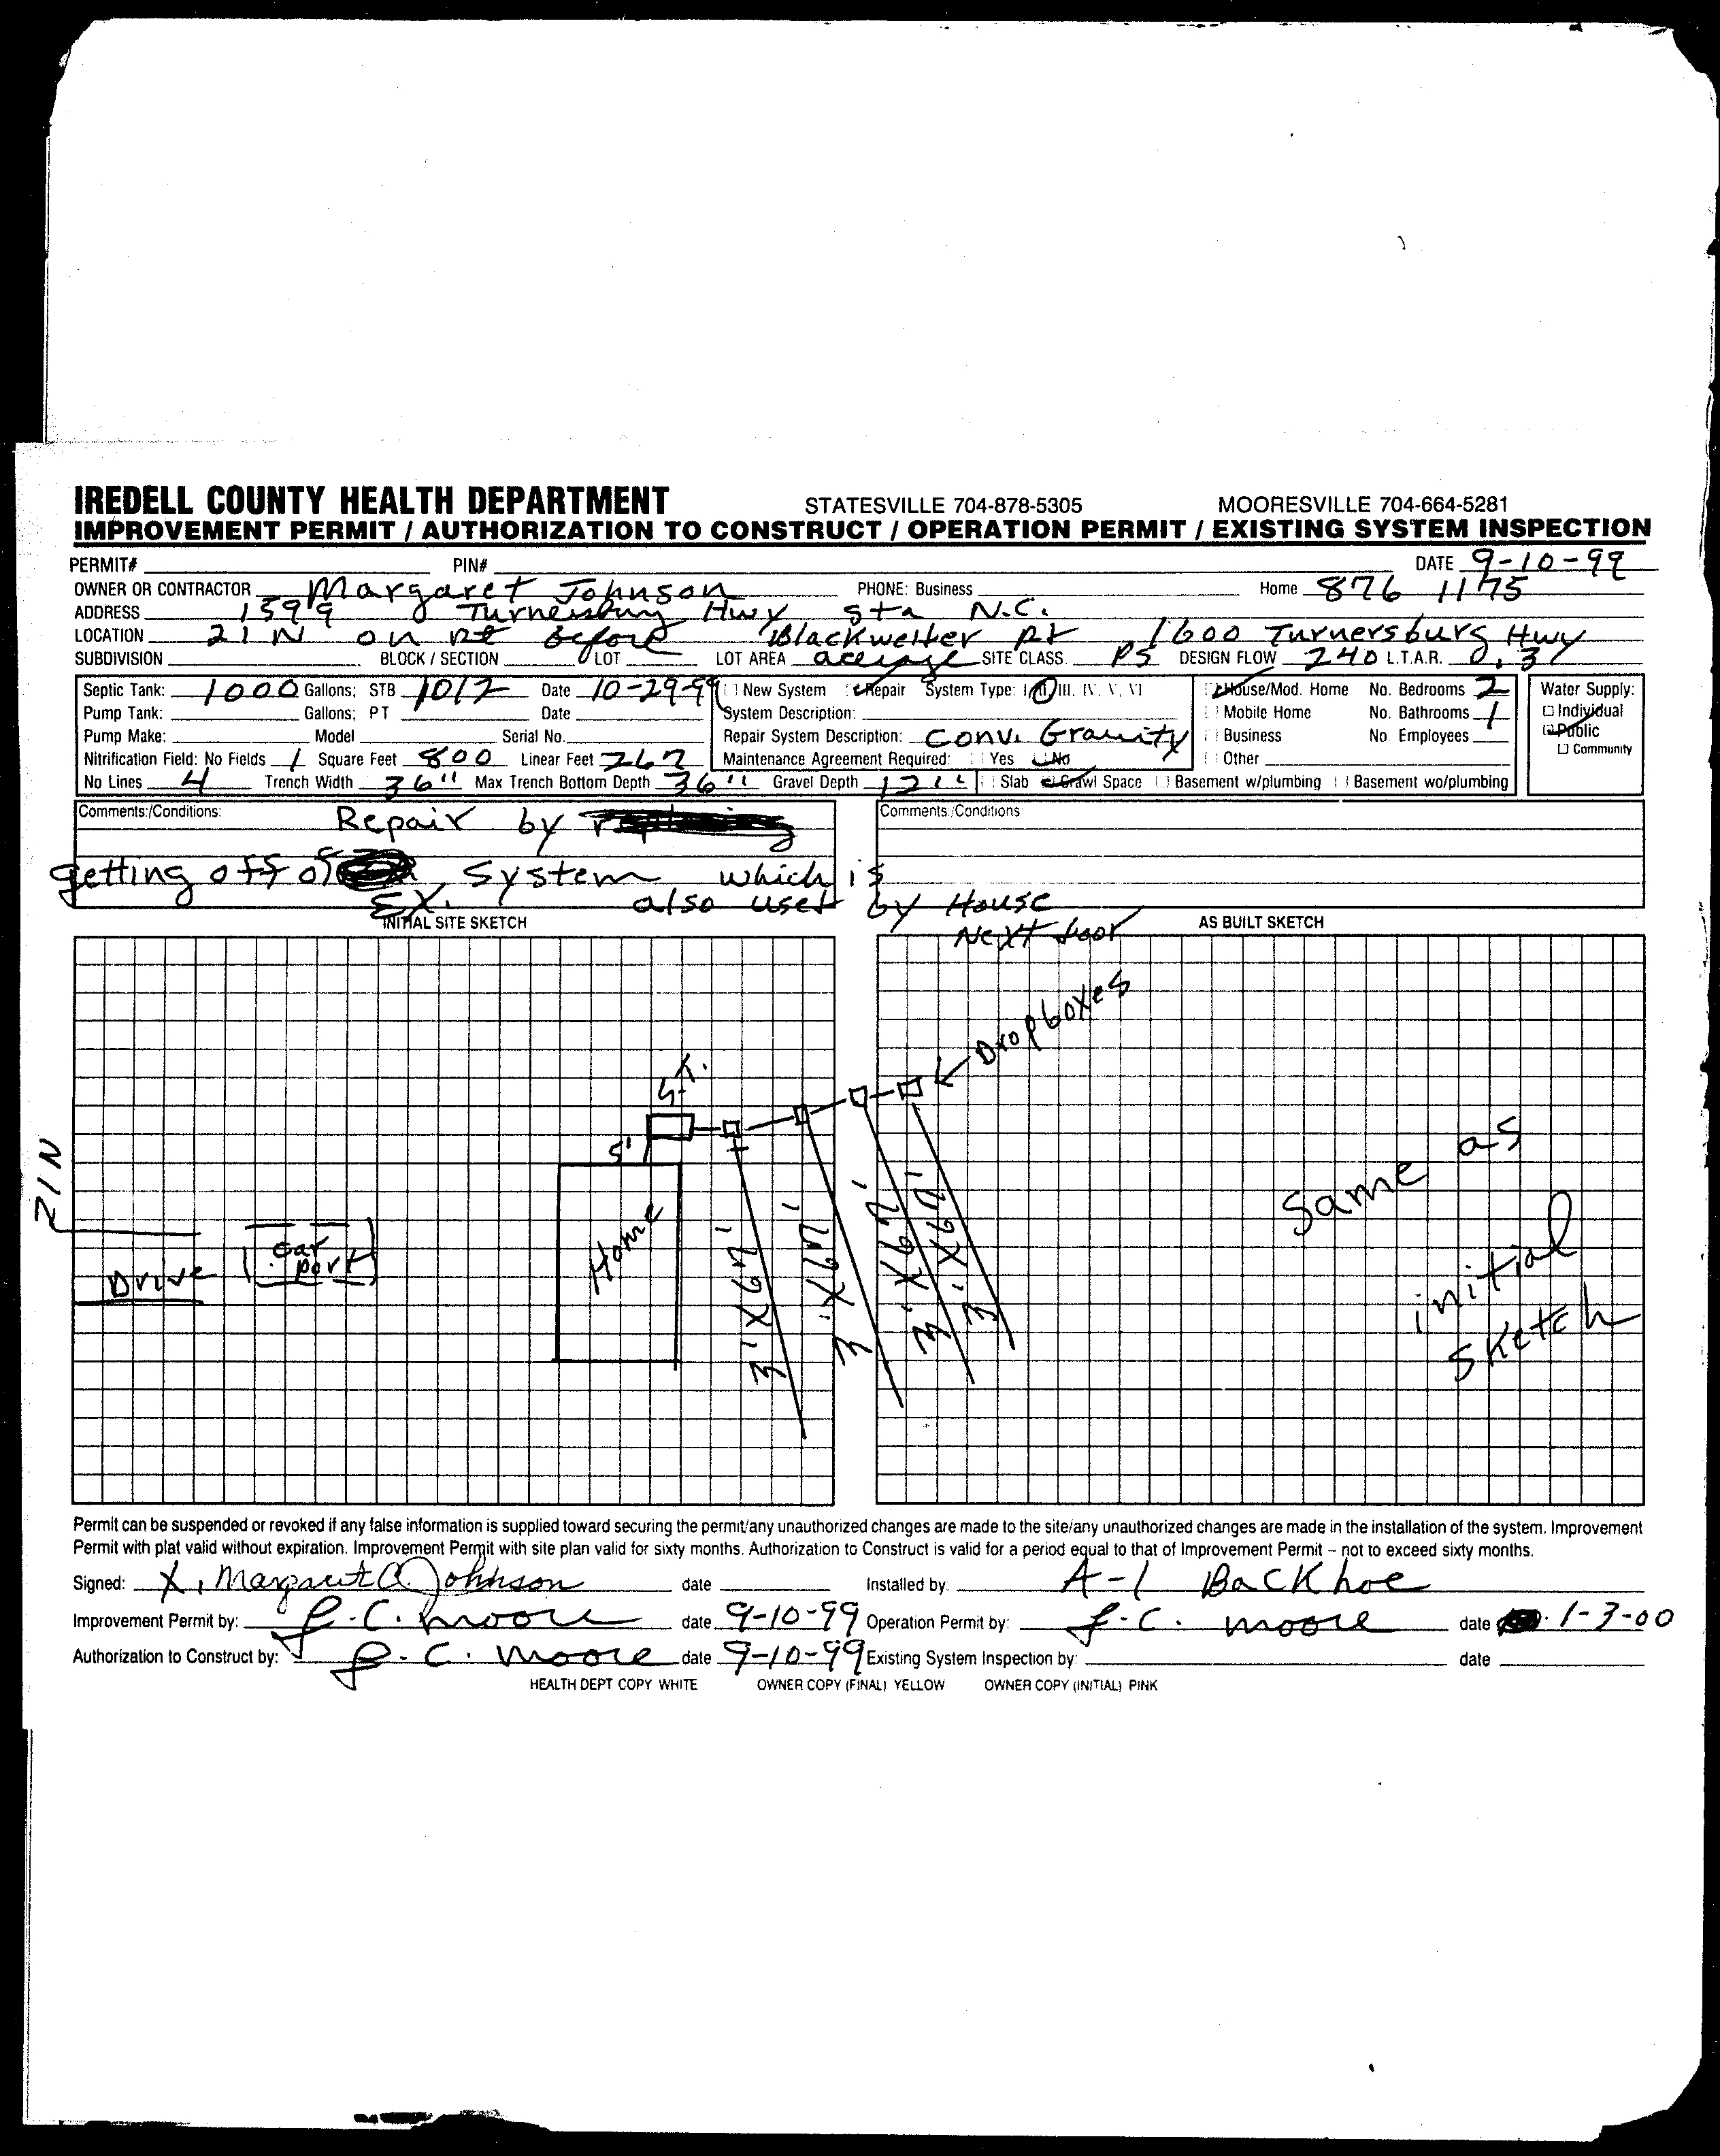 IREDELL COUNTY HEALTH DEPARTMENT STATESVILLE 704-878-5305 MOORESVILLE 704-664-5281
IMPROVEMENT PERMIT / AUTHORIZATION TO CONSTRUCT / OPERATION PERMIT / EXISTING SYSTEM INSPECTION
PERMIT# PIN# DATE 9-10-99
OWNER OR CONTRACTOR Margaret Johnson PHONE: Business Home 876 1175
ADDRESS 1599 Turnersburg Hwy Sta N.C.
LOCATION 21 N on Rt before Blackwelter Rd, 1600 Turnersburg Hwy
SUBDIVISION BLOCK / SECTION LOT LOT AREA acerage SITE CLASS. PS DESIGN FLOW 240 L.T.A.R. 0.3
Septic Tank: 1000 Gallons; STB 1017 Date 10-29-99 New System Repair System Type: I II III, IV, V, VI House/Mod. Home No. Bedrooms 2 Water Supply:
Pump Tank: Gallons; PT Date System Description: Mobile Home No. Bathrooms 1 Individual
Pump Make: Model Serial No. Repair System Description: Conv. Gravity Business No. Employees Public
Nitrification Field: No Fields 1 Square Feet 800 Linear Feet 267 Maintenance Agreement Required: Yes No Other Community
No Lines 4 Trench Width 36" Max Trench Bottom Depth 36" Gravel Depth 12" Slab Crawl Space Basement w/plumbing Basement wo/plumbing
Comments:/Conditions: Repair by Comments:/Conditions
getting off of Ex. System which is
also used by House
Next door
INITIAL SITE SKETCH AS BUILT SKETCH
Dropboxes
S.T.
5'
21N
Home
Car
port
Drive
3'X67'
3'X67'
3'X67'
3'X67'
Same as
initial
sketch
Permit can be suspended or revoked if any false information is supplied toward securing the permit/any unauthorized changes are made to the site/any unauthorized changes are made in the installation of the system. Improvement
Permit with plat valid without expiration. Improvement Permit with site plan valid for sixty months. Authorization to Construct is valid for a period equal to that of Improvement Permit – not to exceed sixty months.
Signed: X, Margaret A. Johnson date Installed by: A-1 Backhoe
Improvement Permit by: J.C. Moore date 9-10-99 Operation Permit by: J.C. Moore date 1-3-00
Authorization to Construct by: J.C. Moore date 9-10-99 Existing System Inspection by: date
HEALTH DEPT COPY WHITE OWNER COPY (FINAL) YELLOW OWNER COPY (INITIAL) PINK